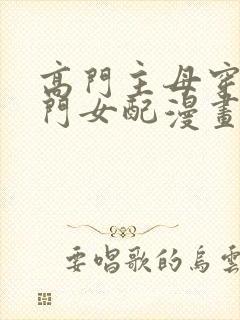 高門主母穿
門女配漫畫
要唱歌的烏雲